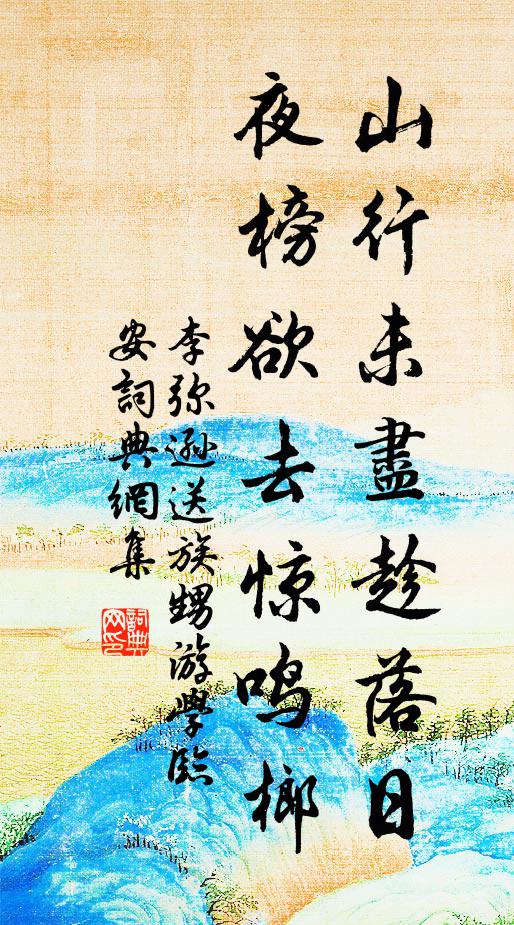 山行未盡趁落日
夜榜欲去惊鸣榔
李弥遜送族甥游學臨
安詞典網集
詞典网印